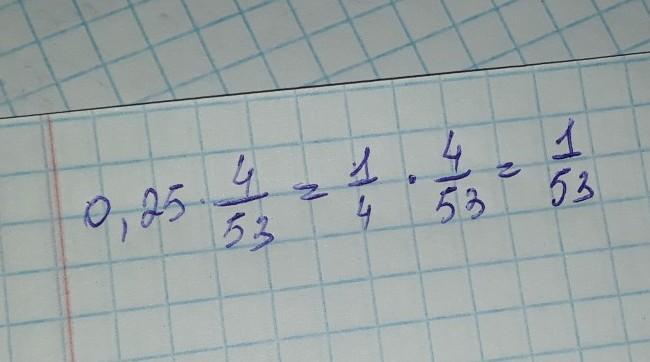 0,25 · 4/53 = 1/4 · 4/53 = 1/53